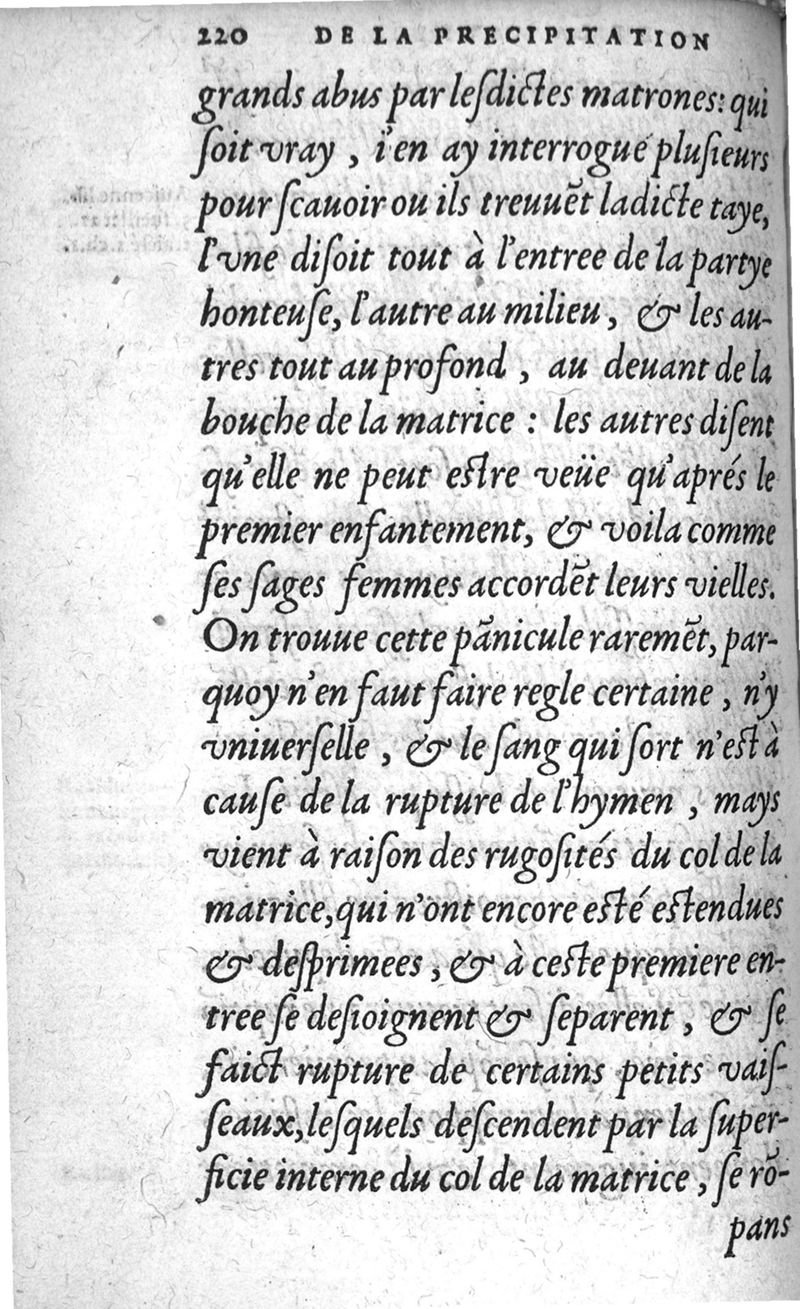 220 DE LA PRECIPITATION
grands abus par leſdictes matrones: qui
ſoit vray , i'en ay interrogué pluſieurs
pour ſcauoir ou ils treuuēt ladicte taye,
l'vne diſoit tout à l'entree de la partye
honteuſe, l'autre au milieu , & les au-
tres tout au profond , au deuant de la
bouche de la matrice : les autres diſent
qu'elle ne peut eſtre veüe qu'aprés le
premier enfantement, & voila comme
ſes ſages femmes accordēt leurs vielles.
On trouue cette pānicule raremēt, par-
quoy n'en faut faire regle certaine , n'y
vniuerſelle , & le ſang qui ſort n'eſt à
cauſe de la rupture de l'hymen , mays
vient à raiſon des rugoſités du col de la
matrice,qui n'ont encore eſté eſtendues
& deſprimees , & à ceſte premiere en-
tree ſe deſioignent & ſeparent , & ſe
faict rupture de certains petits vaiſ-
ſeaux,leſquels deſcendent par la ſuper-
ficie interne du col de la matrice , ſe rō-
pans